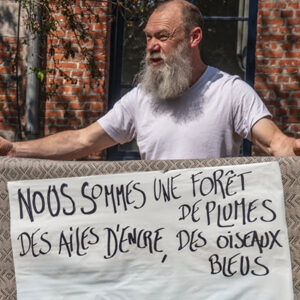 NOUS SOMMES UNE FORÊT
DE PLUMES
DES AILES D'ENCRE, DES OISEAUX
BLEUS